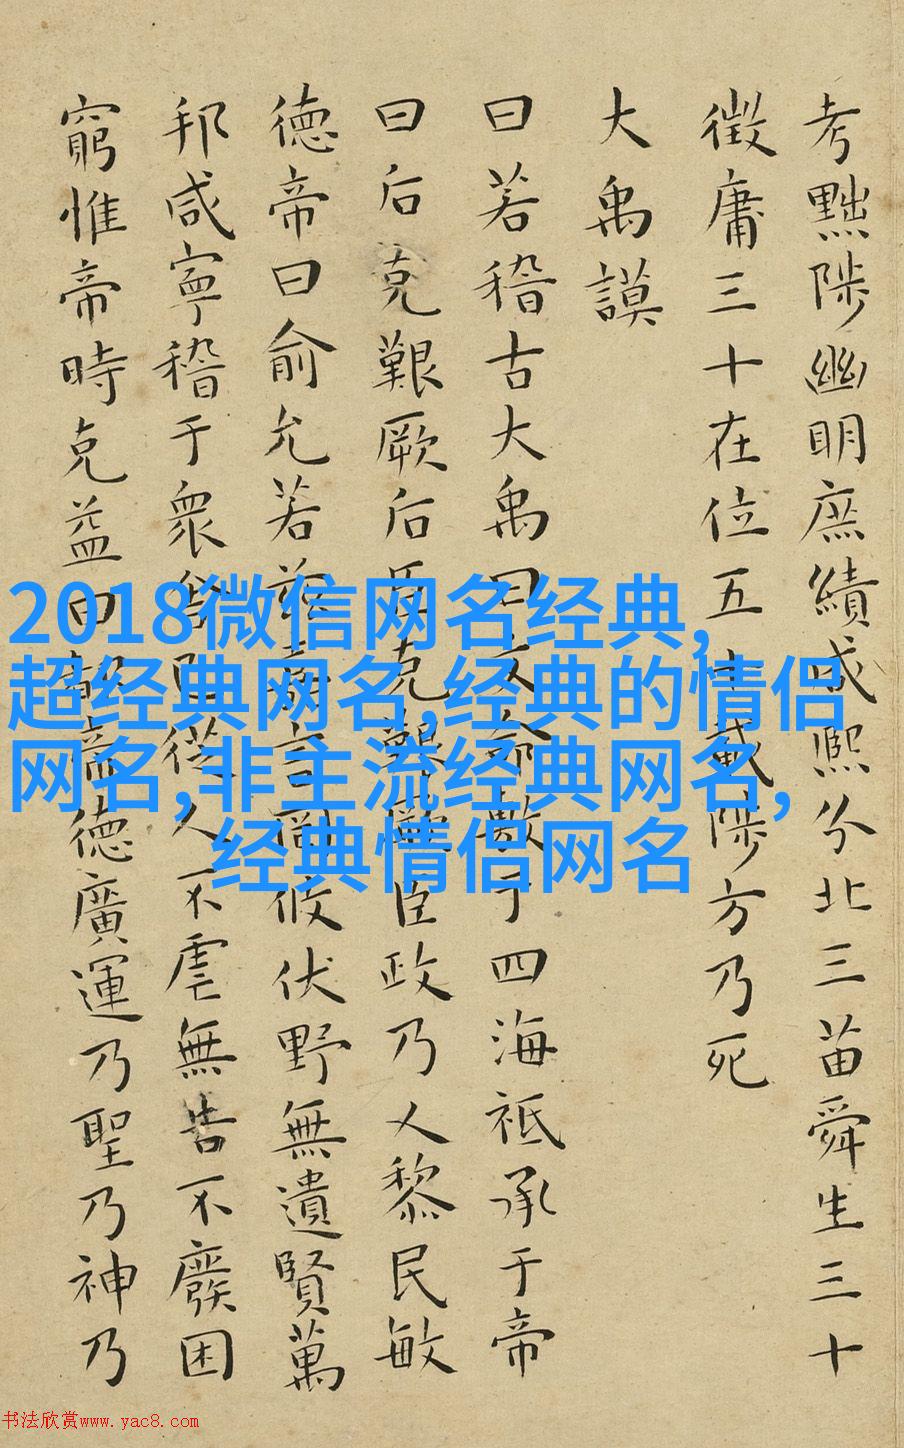 考黜陟幽明庶績咸熙分北三苗舜生三十
徵庸三十在位五十載陟方乃死
大禹謨
曰若稽古大禹曰文命敷于四海祗承于帝
曰后克艱厥后臣克艱厥臣政乃乂黎民敏
德帝曰俞允若茲嘉言罔攸伏野無遺賢萬
邦咸寧稽于眾舍己從人不虐無告不廢困
窮惟帝時克益曰都帝德廣運乃聖乃神乃
2018微信网名经典,
超经典网名,经典的情侣
网名,非主流经典网名,
经典情侣网名
书法欣赏www.yac8.com